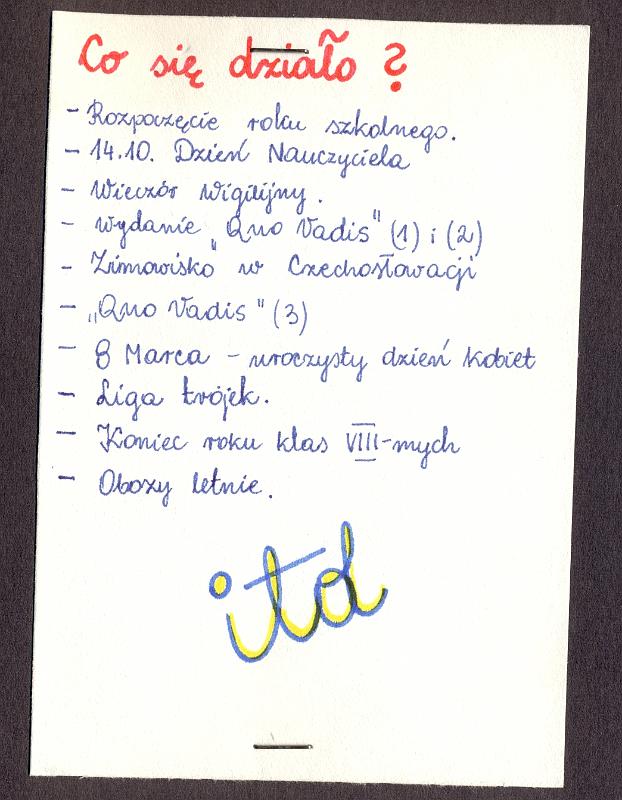 Co się działo ?
- Rozpoczęcie roku szkolnego.
- 14.10. Dzień Nauczyciela
- Wieczór Wigilijny.
- wydanie „Quo Vadis" (1) i (2)
- Zimowisko w Czechosłowacji
- „Quo Vadis" (3)
- 8 Marca - uroczysty dzień kobiet
- Liga trójek.
- Koniec roku klas VIII-mych
- Obozy letnie.
itd